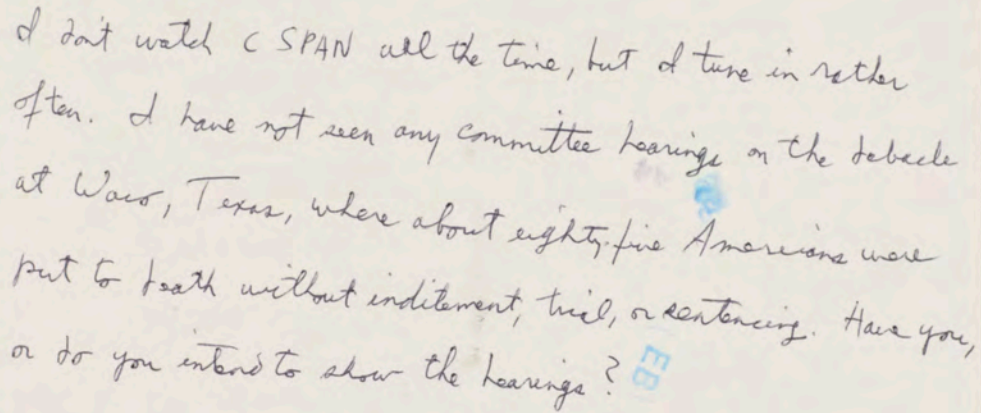 I don't watch C SPAN all the time, but I tune in rather
often. I have not seen any committee hearings on the debacle
at Waco, Texas, where about eighty-five Americans were
put to death without inditement, trial, or sentencing. Have you,
or do you intend to show the hearings?
EB